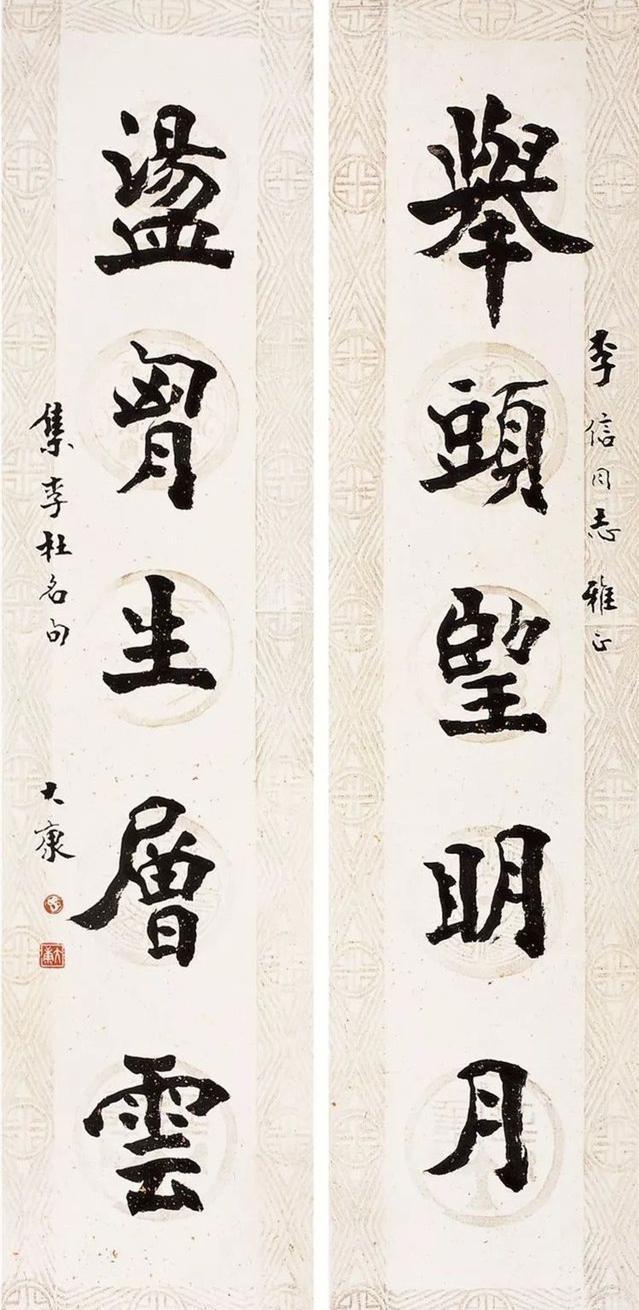 李信同志雅正
舉頭朢明月
盪胷生層雲
集李杜名句
大康